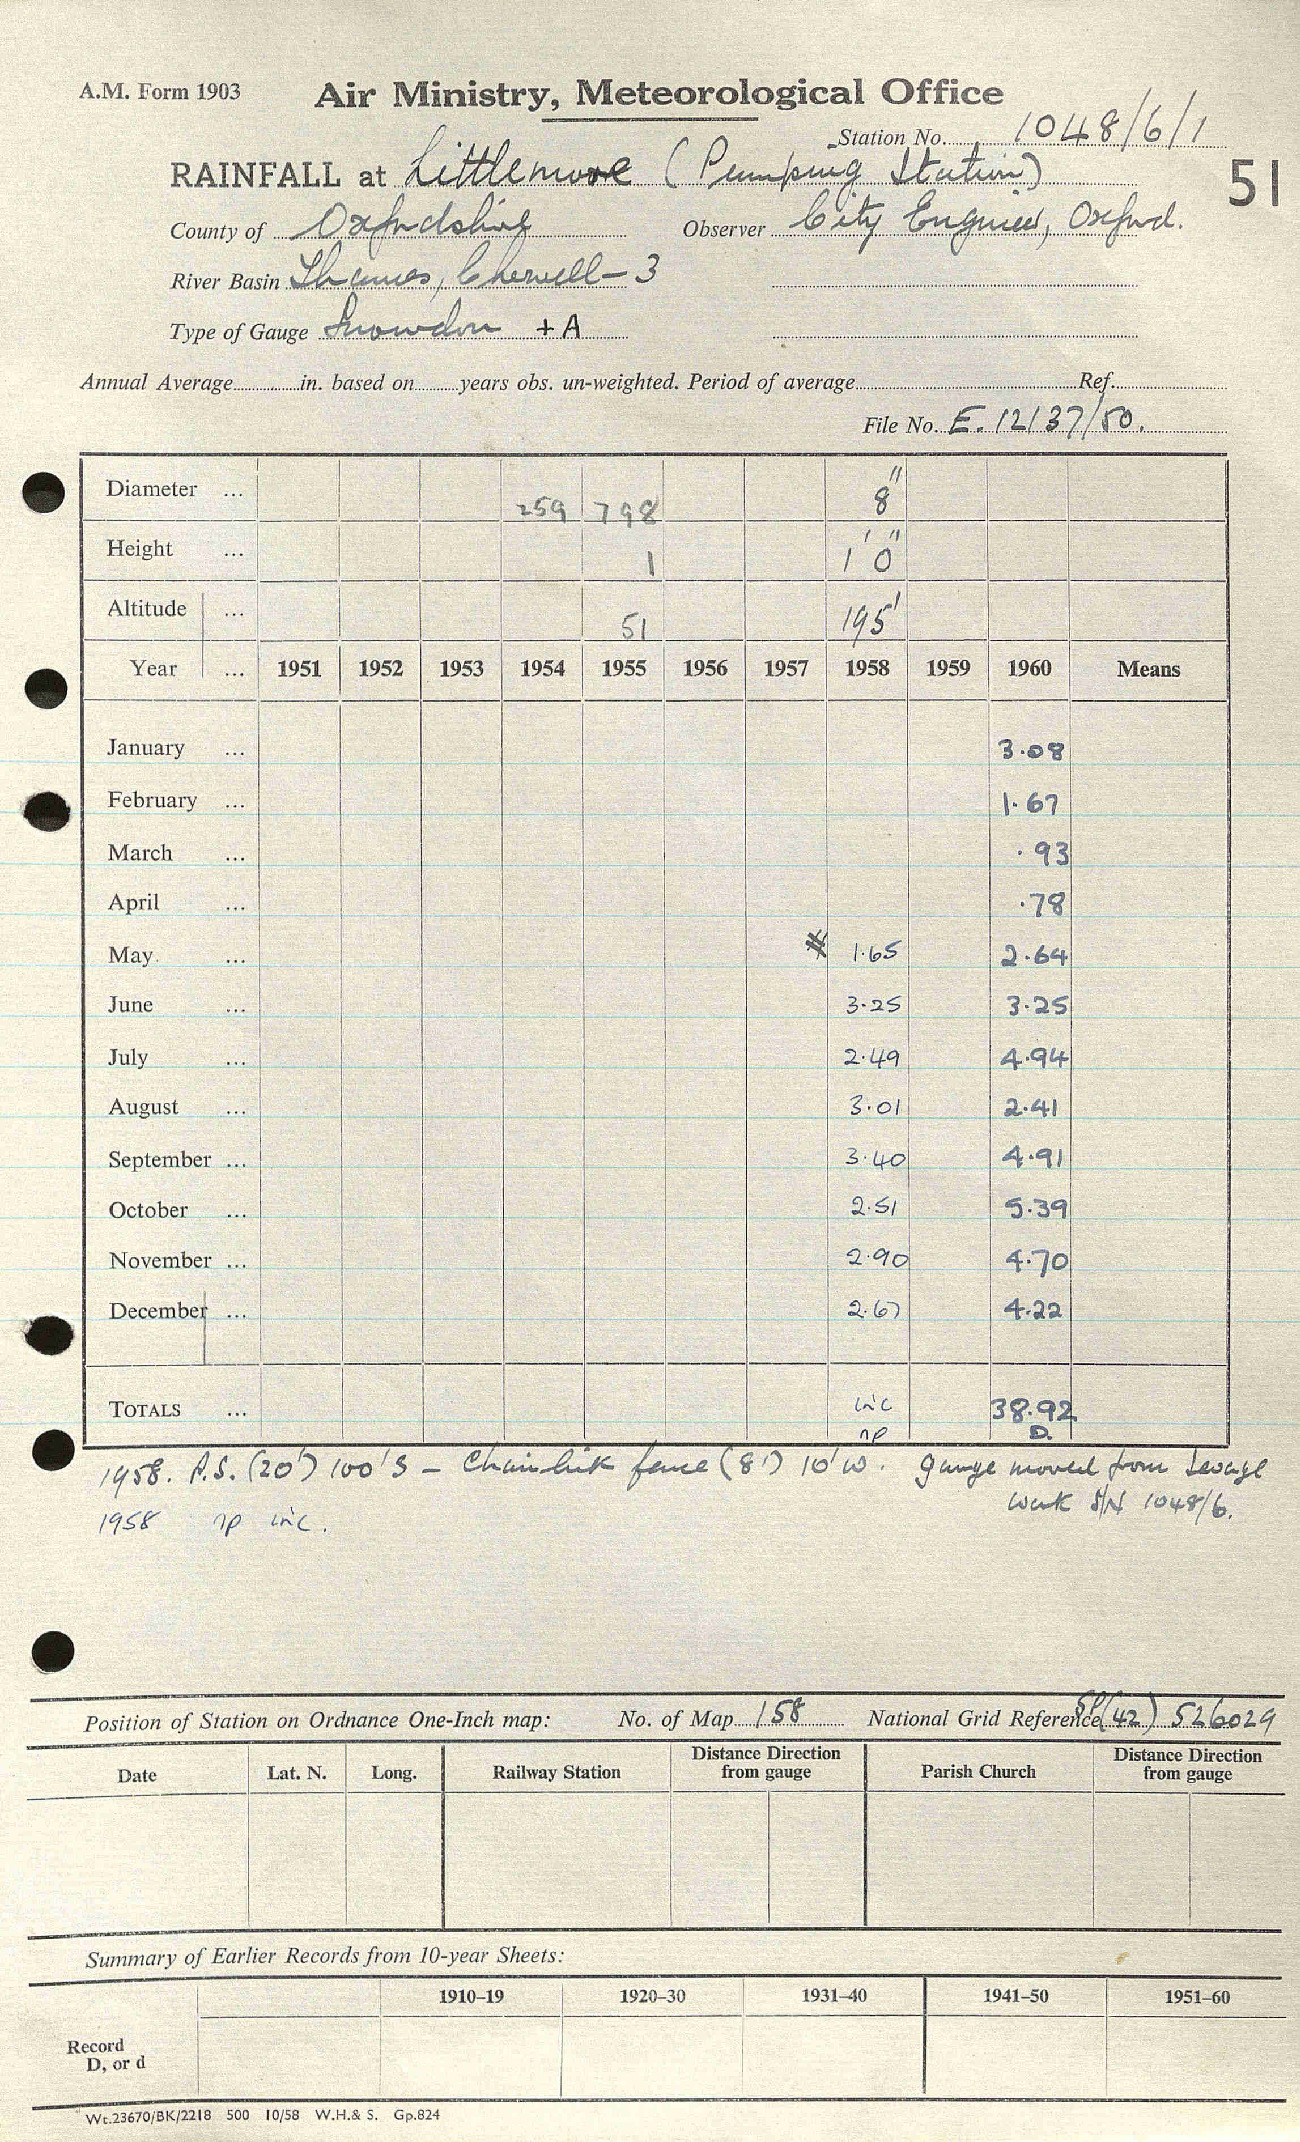 A.M. Form 1903
Air Ministry, Meteorological Office
Station No. 1048/6/1
RAINFALL at Littlemore (Pumping Station)
51
County of Oxfordshire Observer City Engineer, Oxford.
River Basin Thames, Cherwell - 3
Type of Gauge Snowdon + A
Annual Average in. based on years obs. un-weighted. Period of average Ref.
File No. E. 12137/50.
Diameter ... 259 798 8"
Height ... 1 1' 0"
Altitude ... 51 195'
Year ... 1951 1952 1953 1954 1955 1956 1957 1958 1959 1960 Means
January ... 3.08
February ... 1.67
March ... .93
April ... .78
May ... # 1.65 2.64
June ... 3.25 3.25
July ... 2.49 4.94
August ... 3.01 2.41
September ... 3.40 4.91
October ... 2.51 5.39
November ... 2.90 4.70
December ... 2.67 4.22
TOTALS ... inc 38.92
np D.
1958. P.S. (20') 100'S - Chainlink fence (8') 10'W. gauge moved from Sewage
work S/N 1048/6.
1958 np inc.
Position of Station on Ordnance One-Inch map: No. of Map 158 National Grid Reference SP(42) 526029
Date Lat. N. Long. Railway Station Distance Direction from gauge Parish Church Distance Direction from gauge
Summary of Earlier Records from 10-year Sheets:
1910–19 1920–30 1931–40 1941–50 1951–60
Record
D, or d
Wt.23670/BK/2218 500 10/58 W.H.& S. Gp.824